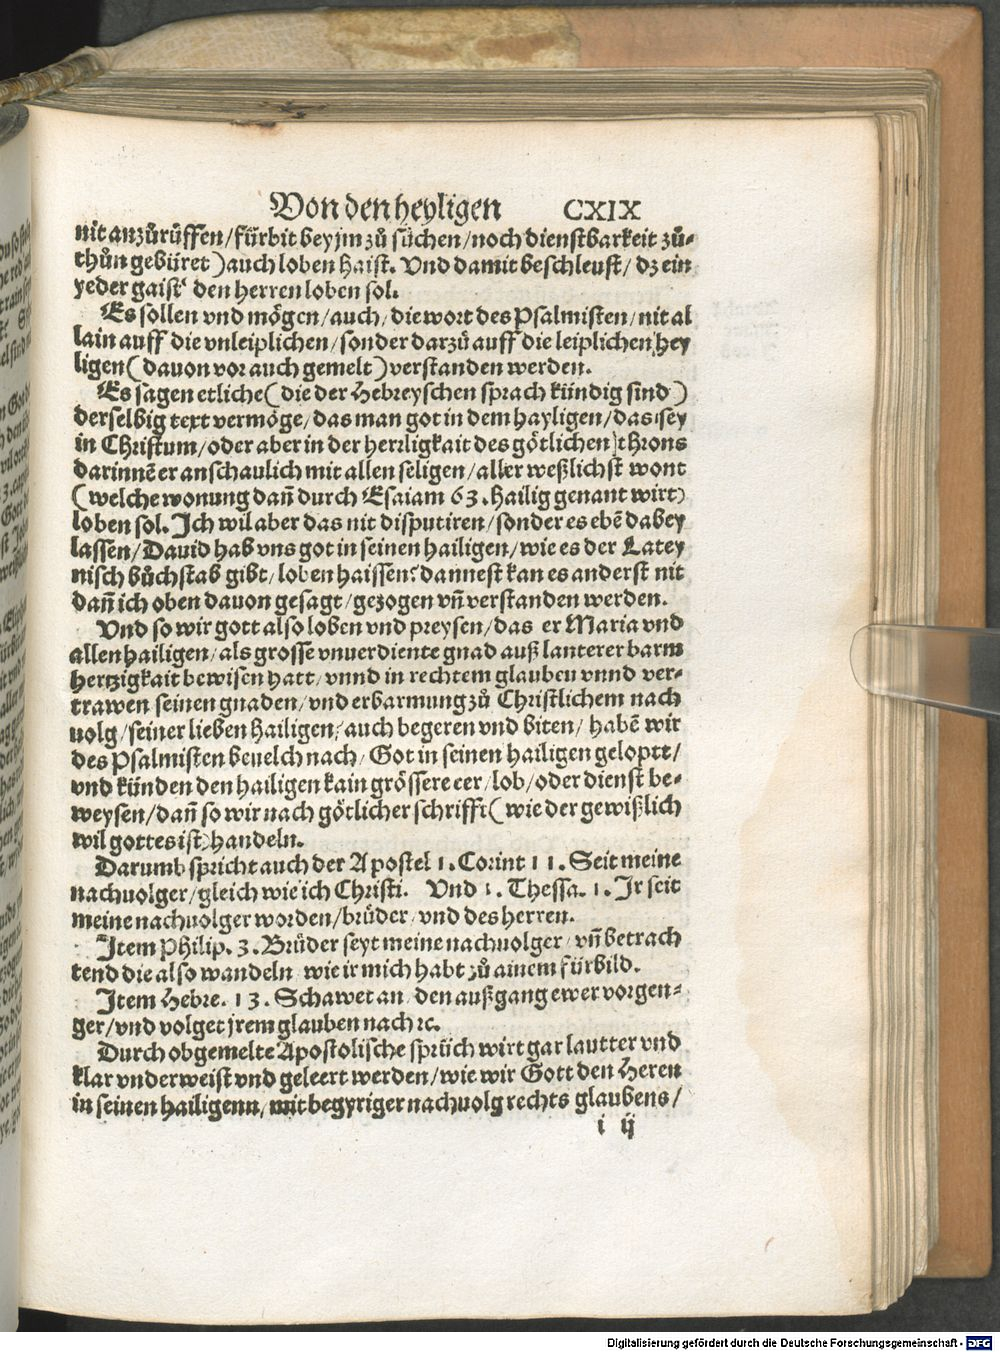 Von den heyligen CXIX
nit anzůrůffen/ fürbit bey jm zů sůchen/ noch dienstbarkeit zů-
thůn gebüret) auch loben haist. Vnd damit beschleust/ dz ein
yeder gaist den herren loben sol.
Es sollen vnd mögen/ auch/ die wort des Psalmisten/ nit al
lain auff die vnleiplichen/ sonder darzů auff die leiplichen hey
ligen (dauon vor auch gemelt) verstanden werden.
Es sagen etliche (die der Hebreyschen sprach kündig sind)
derselbig text vermöge/ das man got in dem hayligen/ das sey
in Christum/ oder aber in der herrligkait des götlichen throns
darinnē er anschaulich mit allen seligen/ aller weßlichst wont
(welche wonung dañ durch Esaiam 63. hailig genant wirt)
loben sol. Ich wil aber das nit disputiren/ sonder es ebē dabey
lassen/ Dauid hab vns got in seinen hailigen/ wie es der Latey
nisch bůchstab gibt/ loben haissen: dannest kan es anderst nit
dañ ich oben dauon gesagt/ gezogen vñ verstanden werden.
Vnd so wir gott also loben vnd preysen/ das er Maria vnd
allen hailigen/ als grosse vnuerdiente gnad auß lanterer barm
hertzigkait bewisen hatt/ vnnd in rechtem glauben vnnd ver-
trawen seinen gnaden/ vnd erbarmung zů Christlichem nach
uolg/ seiner lieben hailigen/ auch begeren vnd biten/ habē wir
des Psalmisten beuelch nach/ Got in seinen hailigen geloptt/
vnd künden den hailigen kain grössere eer/ lob/ oder dienst be-
weysen/ dañ so wir nach götlicher schrifft (wie der gewißlich
wil gottes ist) handeln.
Darumb spricht auch der Apostel 1. Corint 11. Seit meine
nachuolger/ gleich wie ich Christi. Vnd 1. Thessa. 1. Ir seit
meine nachuolger worden/ brüder/ vnd des herren.
Item Philip. 3. Brüder seyt meine nachuolger/ vñ betrach
tend die also wandeln/ wie ir mich habt zů ainem fürbild.
Item Hebre. 13. Schawet an/ den außgang ewer vorgen-
ger/ vnd volget jrem glauben nach ꝛc.
Durch obgemelte Apostolische sprüch wirt gar lautter vnd
klar vnderweist vnd geleert werden/ wie wir Gott den Heren
in seinen hailigenn/ mit begyriger nachuolg rechts glaubens/
i ij
Digitalisierung gefördert durch die Deutsche Forschungsgemeinschaft - DFG